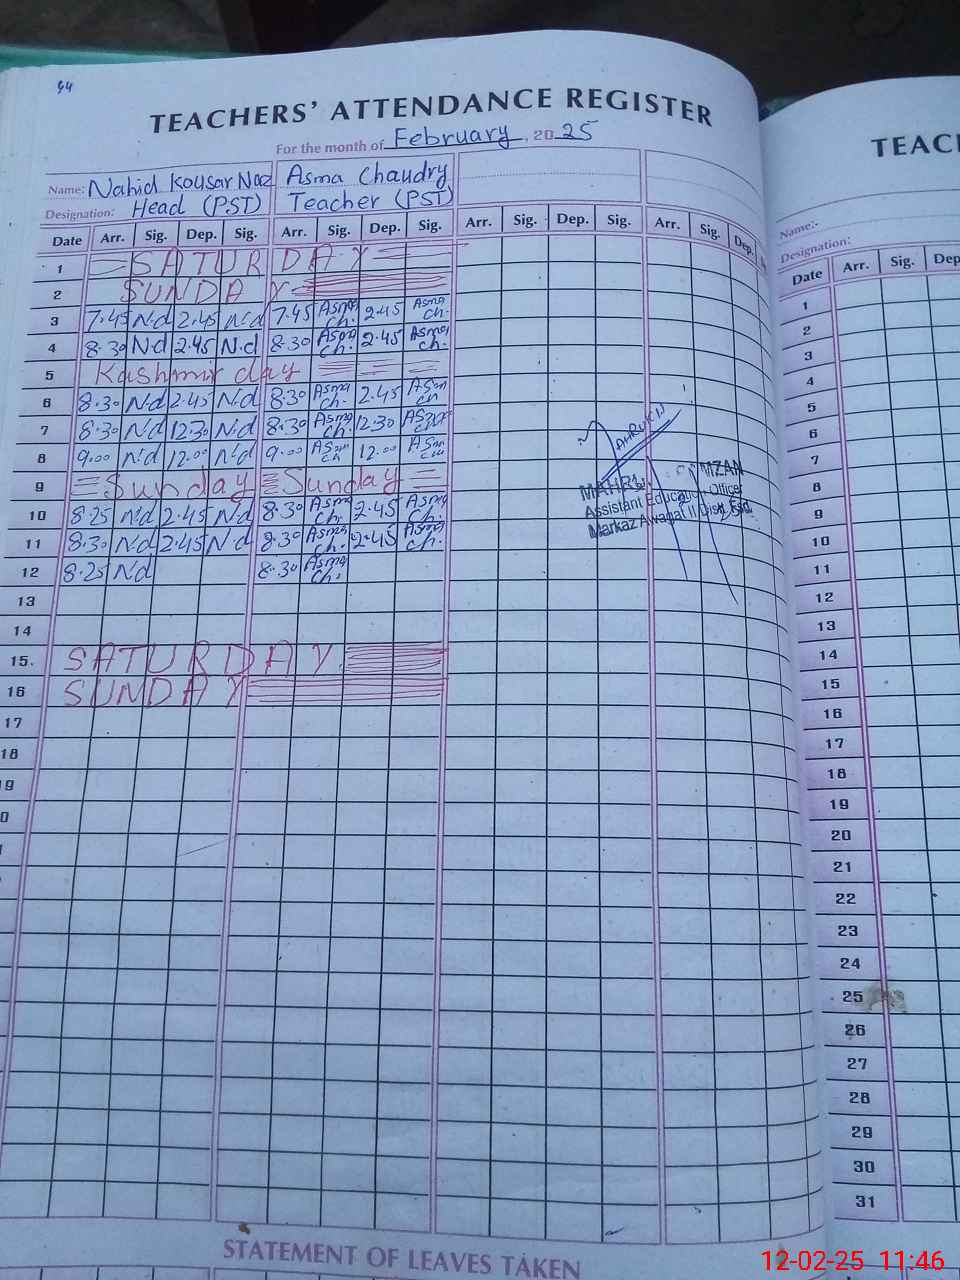 94
TEACHERS' ATTENDANCE REGISTER
For the month of February, 2025
Name: Nahid Kousar Naz Asma Chaudry
Designation: Head (PST) Teacher (PST)
Date Arr. Sig. Dep. Sig. Arr. Sig. Dep. Sig. Arr. Sig. Dep. Sig. Arr. Sig. Dep.
1 SATURDAY
2 SUNDAY
3 7.45 N.d 2.45 N.d 7.45 Asma Ch. 2.45 Asma Ch.
4 8.30 N.d 2.45 N.d 8.30 Asma Ch. 2.45 Asma Ch.
5 Kashmir day
6 8.30 N.d 2.45 N.d 8.30 Asma Ch. 2.45
7 8.30 N.d 12.30 N.d 8.30 Asma Ch. 12.30
8 9.00 N.d 12.00 N.d 9.00 12.00
9 Sunday Sunday
10 8.25 N.d 2.45 N.d 8.30 Asma Ch. 2.45 Asma Ch.
11 8.30 N.d 2.45 N.d 8.30 Asma Ch. 2.45 Asma Ch.
12 8.25 N.d 8.30 Asma Ch.
13
14
15. SATURDAY
16 SUNDAY
17
18
MZAN
Assistant Education Officer
Markaz II Distt.
STATEMENT OF LEAVES TAKEN
TEAC
Name:-
Designation:
Date Arr. Sig. Dep
1
2
3
4
5
6
7
8
9
10
11
12
13
14
15
16
17
18
19
20
21
22
23
24
25
26
27
28
29
30
31
12-02-25 11:46